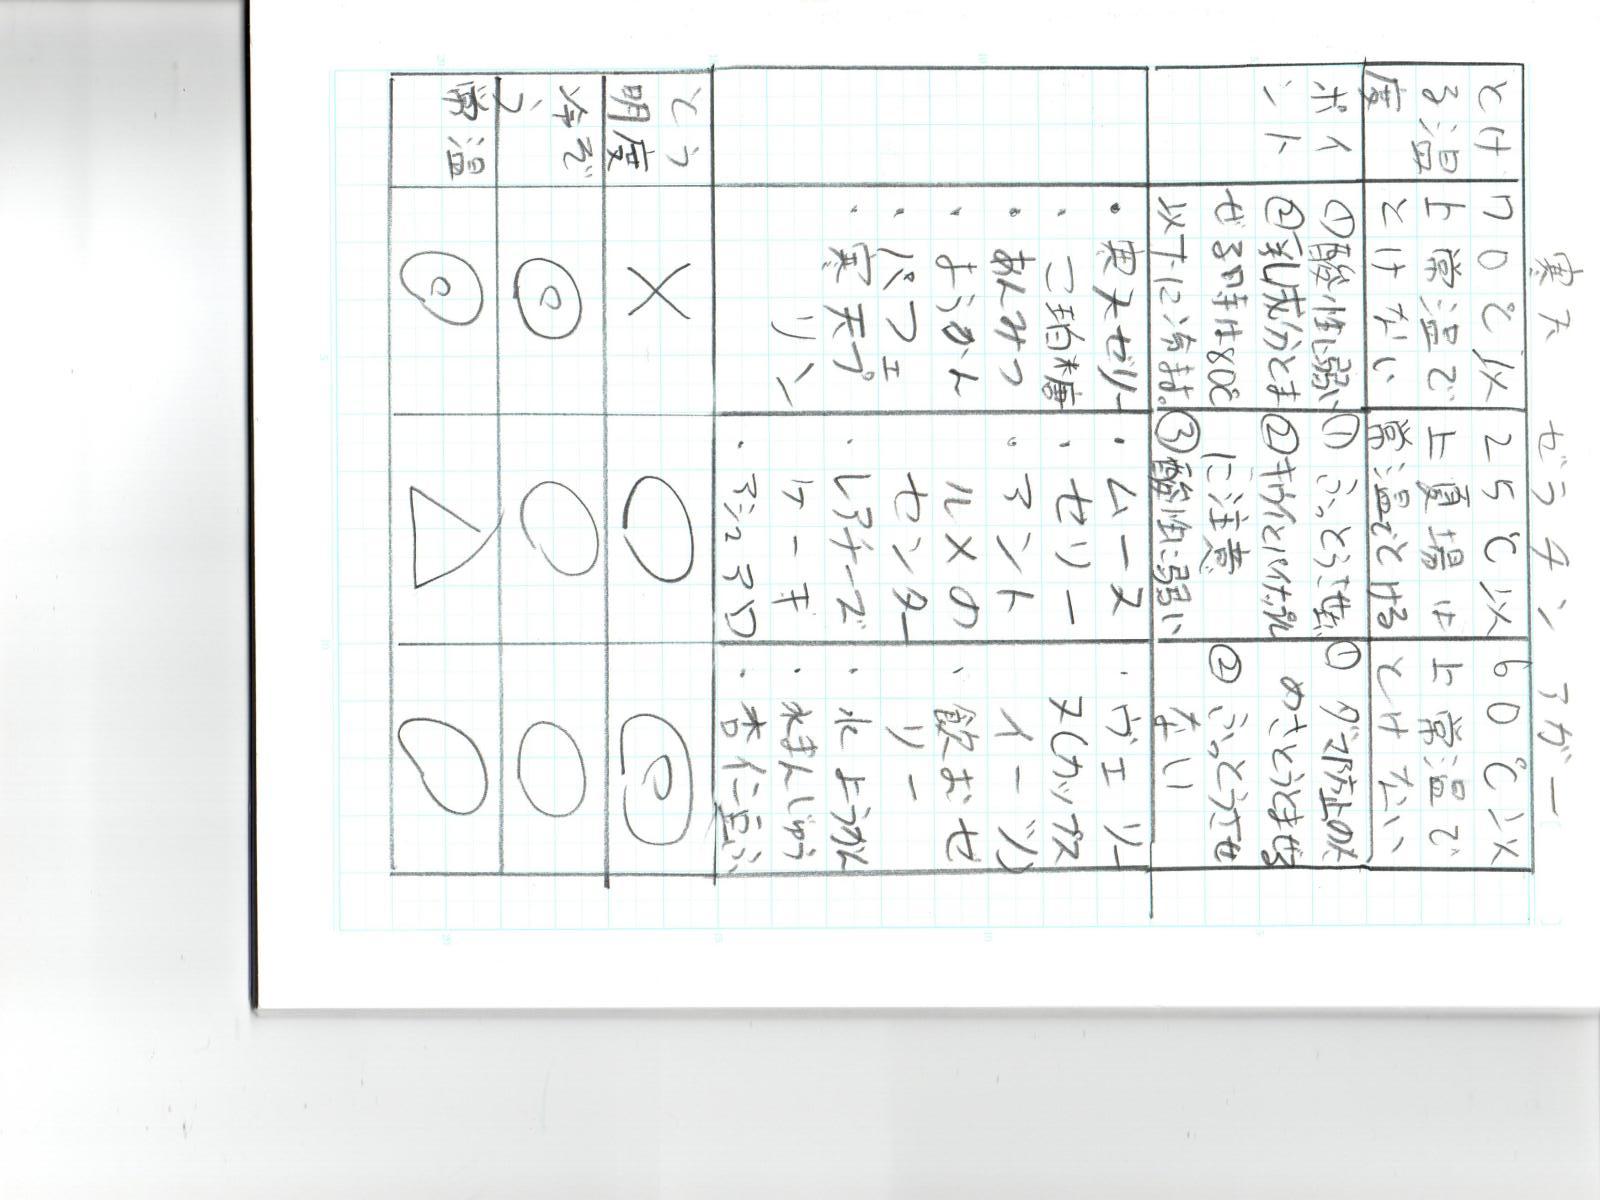 寒天 ゼラチン アガー
とけ
る温
度
70℃以
上常温で
とけない
25℃以
上夏場は
常温でとける
60℃以
上常温で
とけない
ポイ
ント
①酸性に弱い
②乳成分とま
ぜる時は80℃
以下に冷ます。
①ふっとうさせない
に注意
③酸性に弱い
①ダマ防止のた
めさとうとまぜる
②ふっとうさせ
ない
・寒天ゼリー
・こ珀糖
・あんみつ
・ようかん
・パフェ
・寒天プ
リン
・ムース
・ゼリー
・アント
ルメの
センター
・レアチーズ
ケーキ
・マシュマロ
・ヴェリー
ヌ(カップス
イーツ)
・飲むゼ
リー
・水ようかん
・水まんじゅう
・杏仁豆ふ
とう
明度
×
○
◎
冷ぞ
う
◎
○
○
常温
◎
△
○